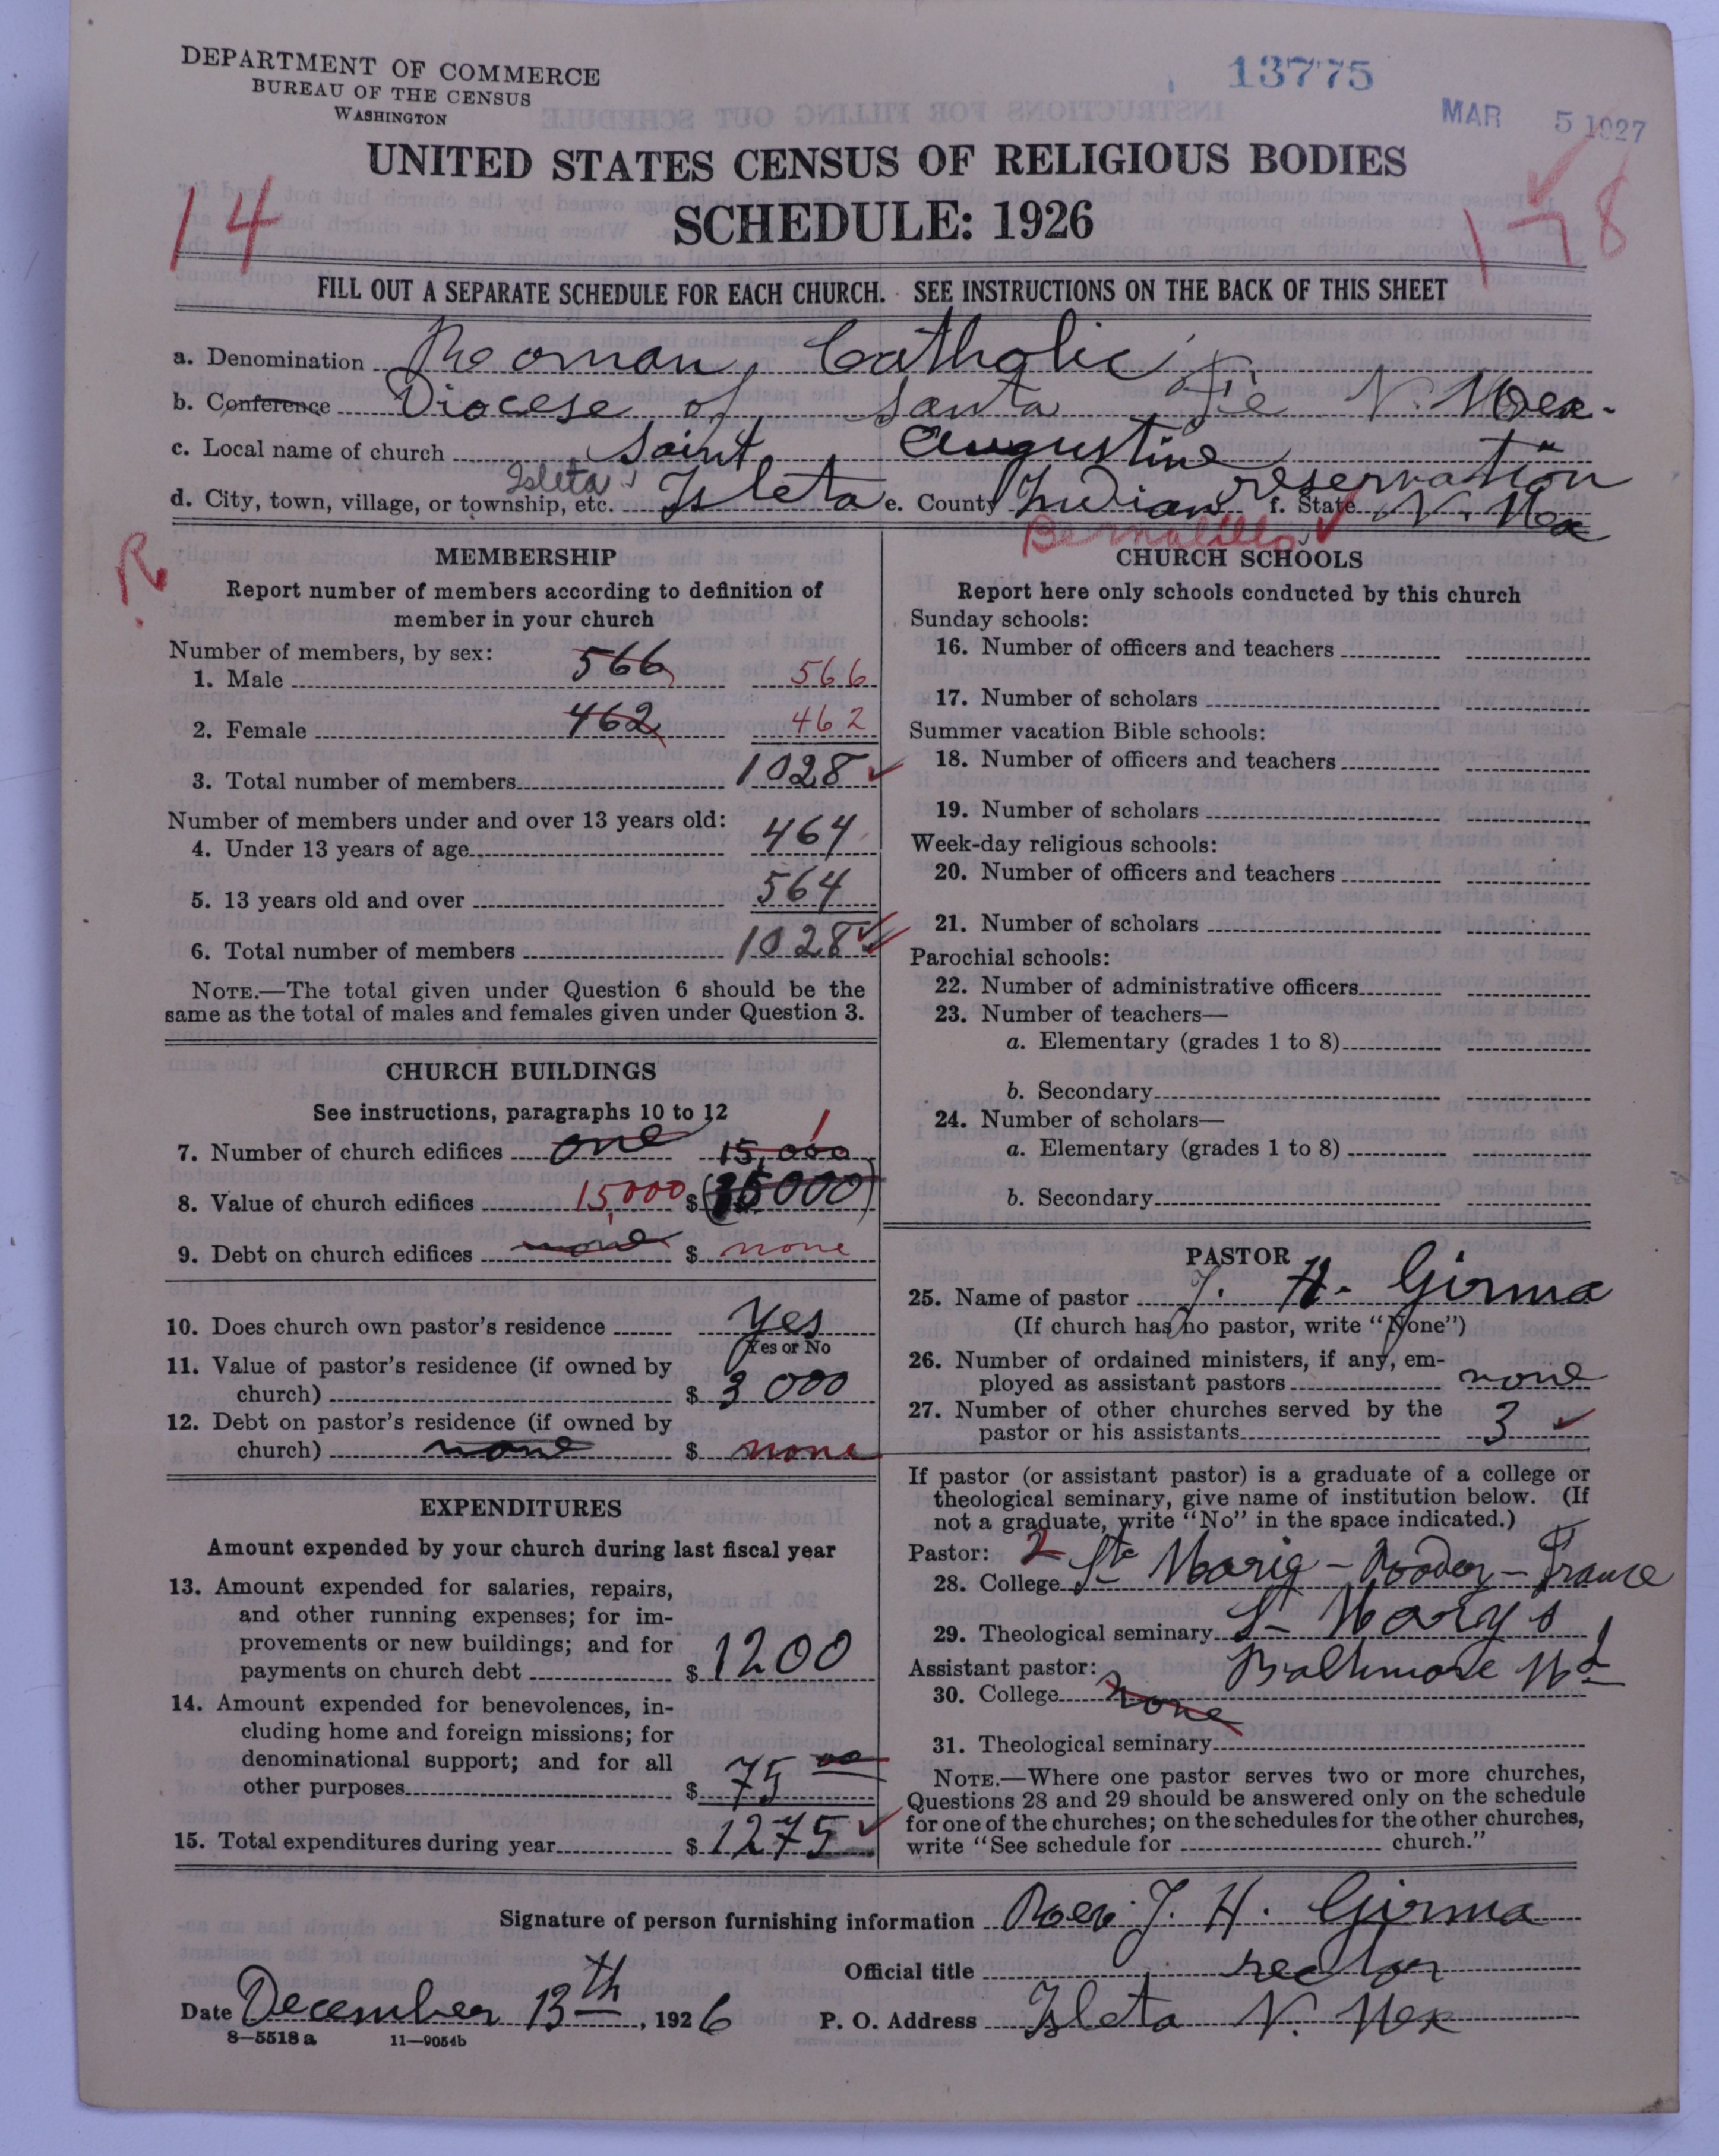 DEPARTMENT OF COMMERCE
BUREAU OF THE CENSUS
WASHINGTON
13775
MAR 5 1927
UNITED STATES CENSUS OF RELIGIOUS BODIES
SCHEDULE: 1926
14
FILL OUT A SEPARATE SCHEDULE FOR EACH CHURCH. SEE INSTRUCTIONS ON THE BACK OF THIS SHEET
a. Denomination Roman Catholic
b. Conference Diocese of Santa Fe N. Mex.
c. Local name of church Saint Augustine
d. City, town, village, or township, etc. Isleta Isleta e. County Indian reservation f. State N. Mex
Bernalillo
R
MEMBERSHIP
Report number of members according to definition of
member in your church
Number of members, by sex:
1. Male 566 566
2. Female 462 462
3. Total number of members 1028
Number of members under and over 13 years old:
4. Under 13 years of age 464
5. 13 years old and over 564
6. Total number of members 1028
NOTE.—The total given under Question 6 should be the
same as the total of males and females given under Question 3.
CHURCH BUILDINGS
See instructions, paragraphs 10 to 12
7. Number of church edifices one 1 15,000
8. Value of church edifices 15,000 $ (15000)
9. Debt on church edifices none $ none
10. Does church own pastor's residence Yes
Yes or No
11. Value of pastor's residence (if owned by
church) $ 3000
12. Debt on pastor's residence (if owned by
church) none $ none
EXPENDITURES
Amount expended by your church during last fiscal year
13. Amount expended for salaries, repairs,
and other running expenses; for im-
provements or new buildings; and for
payments on church debt $ 1200
14. Amount expended for benevolences, in-
cluding home and foreign missions; for
denominational support; and for all
other purposes $ 75 00
15. Total expenditures during year $ 1275
CHURCH SCHOOLS
Report here only schools conducted by this church
Sunday schools:
16. Number of officers and teachers
17. Number of scholars
Summer vacation Bible schools:
18. Number of officers and teachers
19. Number of scholars
Week-day religious schools:
20. Number of officers and teachers
21. Number of scholars
Parochial schools:
22. Number of administrative officers
23. Number of teachers—
a. Elementary (grades 1 to 8)
b. Secondary
24. Number of scholars—
a. Elementary (grades 1 to 8)
b. Secondary
PASTOR
25. Name of pastor J. H. Girma
(If church has no pastor, write "None")
26. Number of ordained ministers, if any, em-
ployed as assistant pastors none
27. Number of other churches served by the
pastor or his assistants 3
If pastor (or assistant pastor) is a graduate of a college or
theological seminary, give name of institution below. (If
not a graduate, write "No" in the space indicated.)
Pastor: 2
28. College Ste Marie - - France
29. Theological seminary St Mary's
Baltimore Md
Assistant pastor:
30. College none
31. Theological seminary
NOTE.—Where one pastor serves two or more churches,
Questions 28 and 29 should be answered only on the schedule
for one of the churches; on the schedules for the other churches,
write "See schedule for church."
Signature of person furnishing information Rev. J. H. Girma
Official title rector
Date December 13th, 1926 P. O. Address Isleta N. Mex
8—5518 a 11—9054b